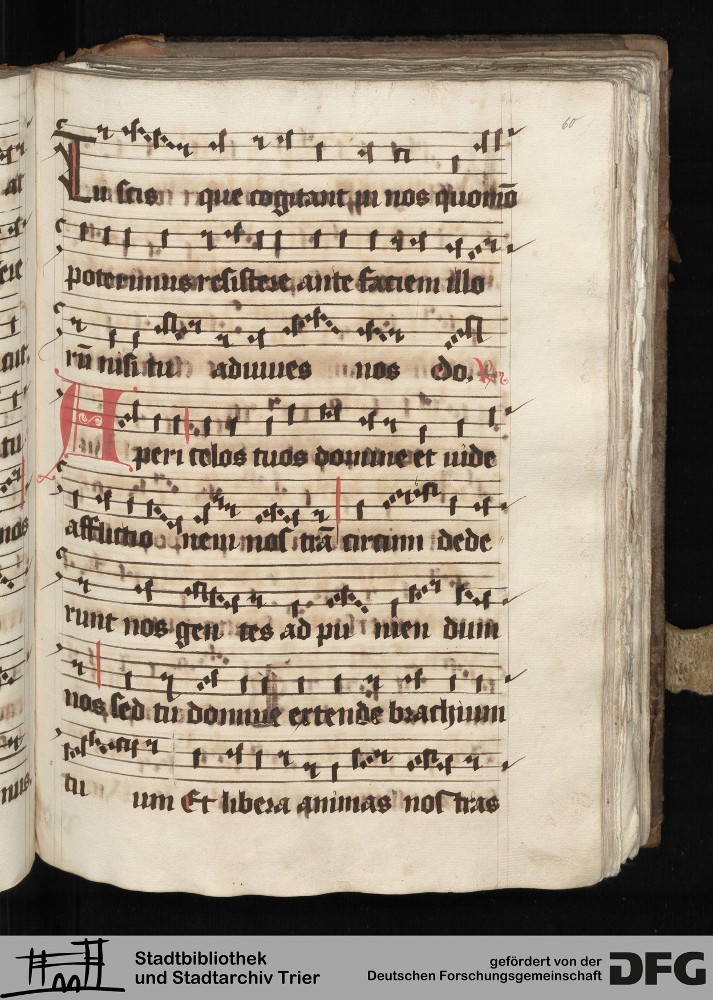 60
Tu scis que cogitant in nos quomō
poterimus resistere ante faciem illo
rū nisi tu adiuues nos do.
Aperi celos tuos domine et uide
afflictionem nostrā circum dede
runt nos gentes ad puniendum
nos sed tu domine extende brachium
tuum Et libera animas nostras
Stadtbibliothek
und Stadtarchiv Trier
gefördert von der
Deutschen Forschungsgemeinschaft
DFG